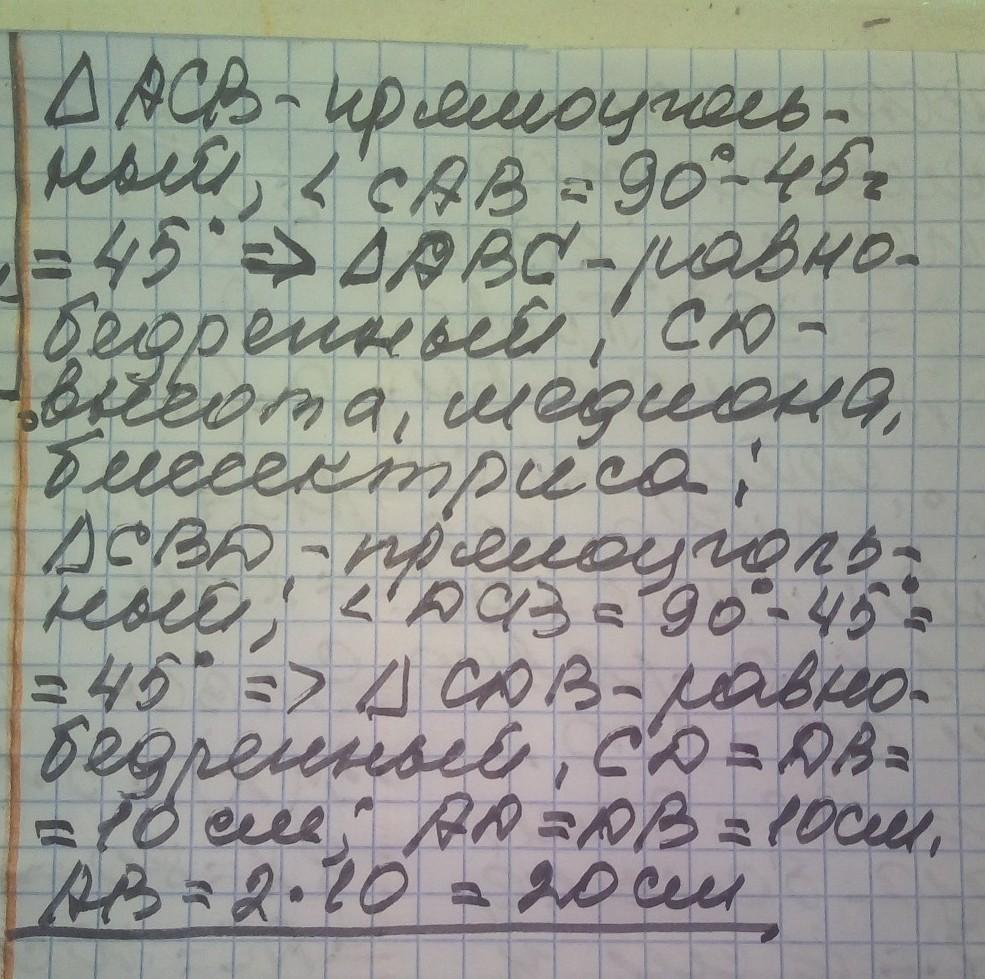 Δ ACB - прямоуголь-
ный, < CAB = 90° - 45 =
= 45° => Δ ABC - равно-
бедренный; CD -
высота, медиана,
биссектриса;
Δ CBD - прямоуголь-
ный; < DCB = 90° - 45° =
= 45° => Δ CDB - равно-
бедренный, CD = DB =
= 10 см; AD = DB = 10 см.
AB = 2 · 10 = 20 см